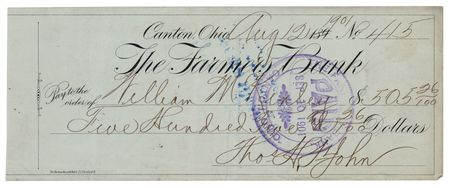 Canton, Ohio, Aug 12 1901 No 415
The Farmers Bank
Pay to the order of William McKinley $505 26/100
Five Hundred five & 26/100 Dollars
PAID
Thos. H. John